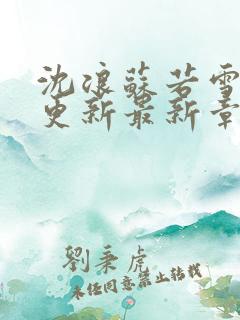 沈浪蘇若雪
更新最新章
劉秉虎
未经同意禁止转载